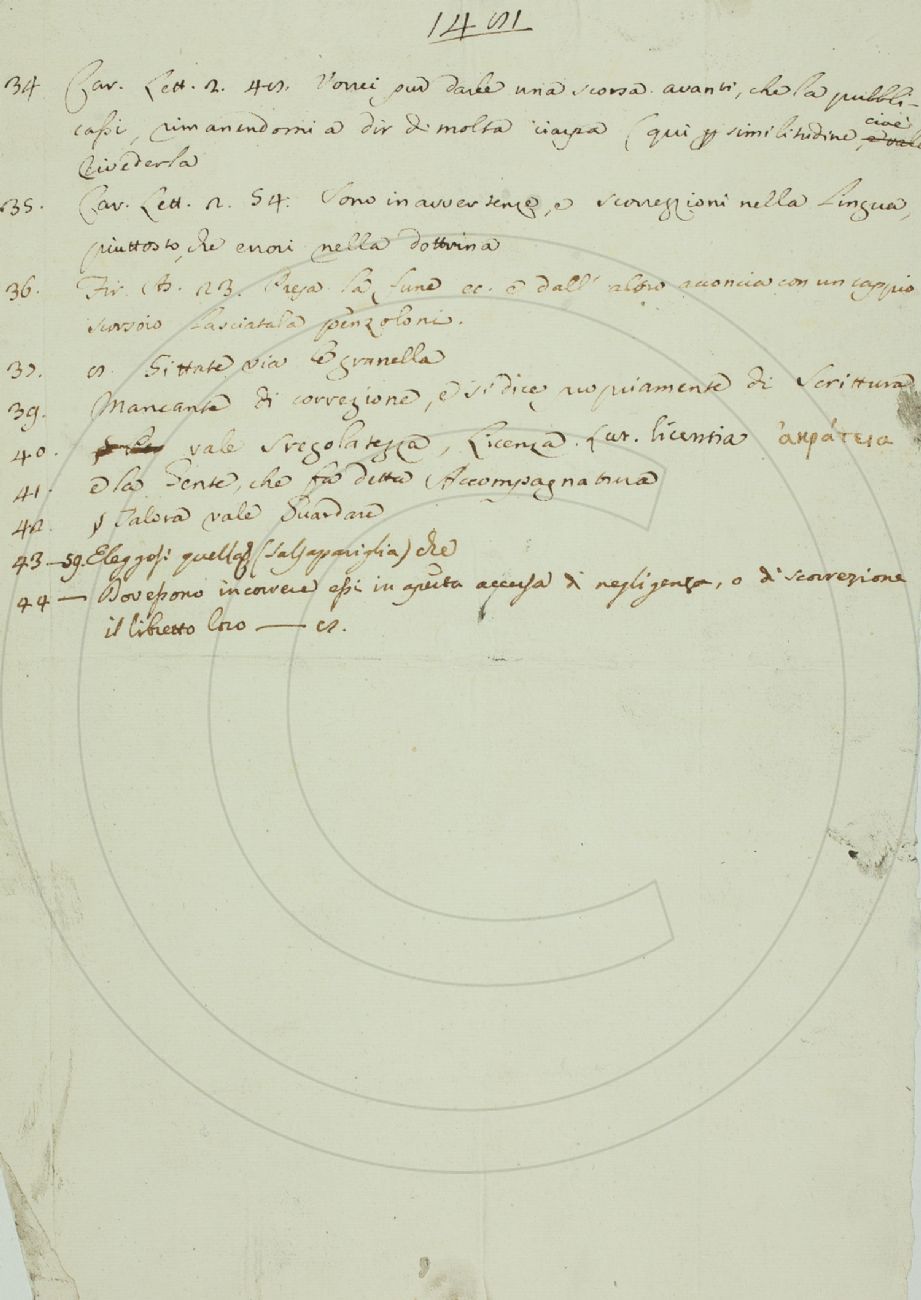 34 Car. Lett. 2. 42. Vorrei pur darle una scorsa avanti, che la pubbli-
cassi, rimanendomi a dir di molta ciarpa (qui p similitudine cioè
Rivederla
35. Car. Lett. 2. 54. Sono inavvertenze, e scorrezzioni nella Lingua,
piuttosto, che errori nella dottrina
36. Fir. As. 23. Presa la fune ec. e dall' altro acconcia con un cappio
scorsoio lasciatala penzoloni.
37. Gittate via le granella
39. Mancante di correzione, e si dice propiamente di Scrittura
40. vale Sregolatezza, Licenza. Lat. licentia ἀκράτεια
41. e la Gente, che fa detta Accompagnatura
42. Talora vale Guardare
43 — 59. Eleggosi quella (Salsapariglia) che
44 — Dovessono incorrere essi in aperta accusa di negligenza, o di scorrezione
il libretto loro —